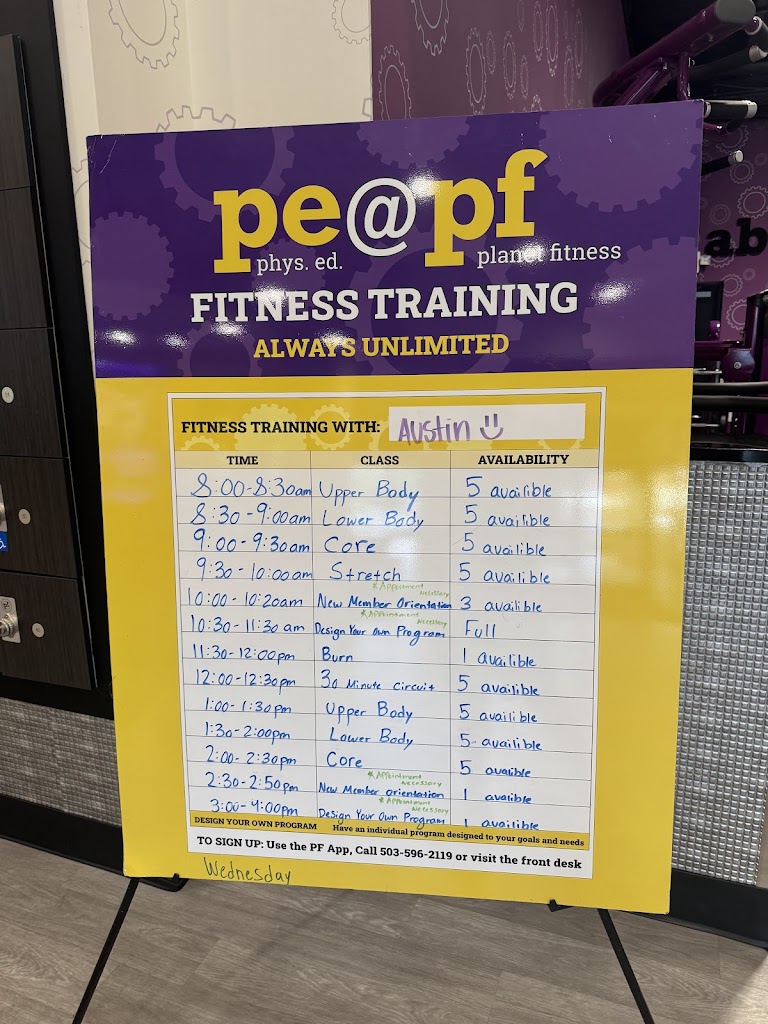 pe@pf
phys. ed. planet fitness
FITNESS TRAINING
ALWAYS UNLIMITED
FITNESS TRAINING WITH: Austin
TIME CLASS AVAILABILITY
8:00-8:30am Upper Body 5 availible
8:30-9:00am Lower Body 5 availible
9:00-9:30am Core 5 availible
9:30-10:00am Stretch 5 availible
*Appointment Necessary
10:00-10:20am New Member Orientation 3 availible
*Appointment Necessary
10:30-11:30am Design Your Own Program Full
11:30-12:00pm Burn 1 availible
12:00-12:30pm 30 Minute Circuit 5 availible
1:00-1:30pm Upper Body 5 availible
1:30-2:00pm Lower Body 5 availible
2:00-2:30pm Core 5 availible
*Appointment Necessary
2:30-2:50pm New Member Orientation 1 availible
*Appointment Necessary
3:00-4:00pm Design Your Own Program 1 availible
DESIGN YOUR OWN PROGRAM Have an individual program designed to your goals and needs
TO SIGN UP: Use the PF App, Call 503-596-2119 or visit the front desk
Wednesday
ab